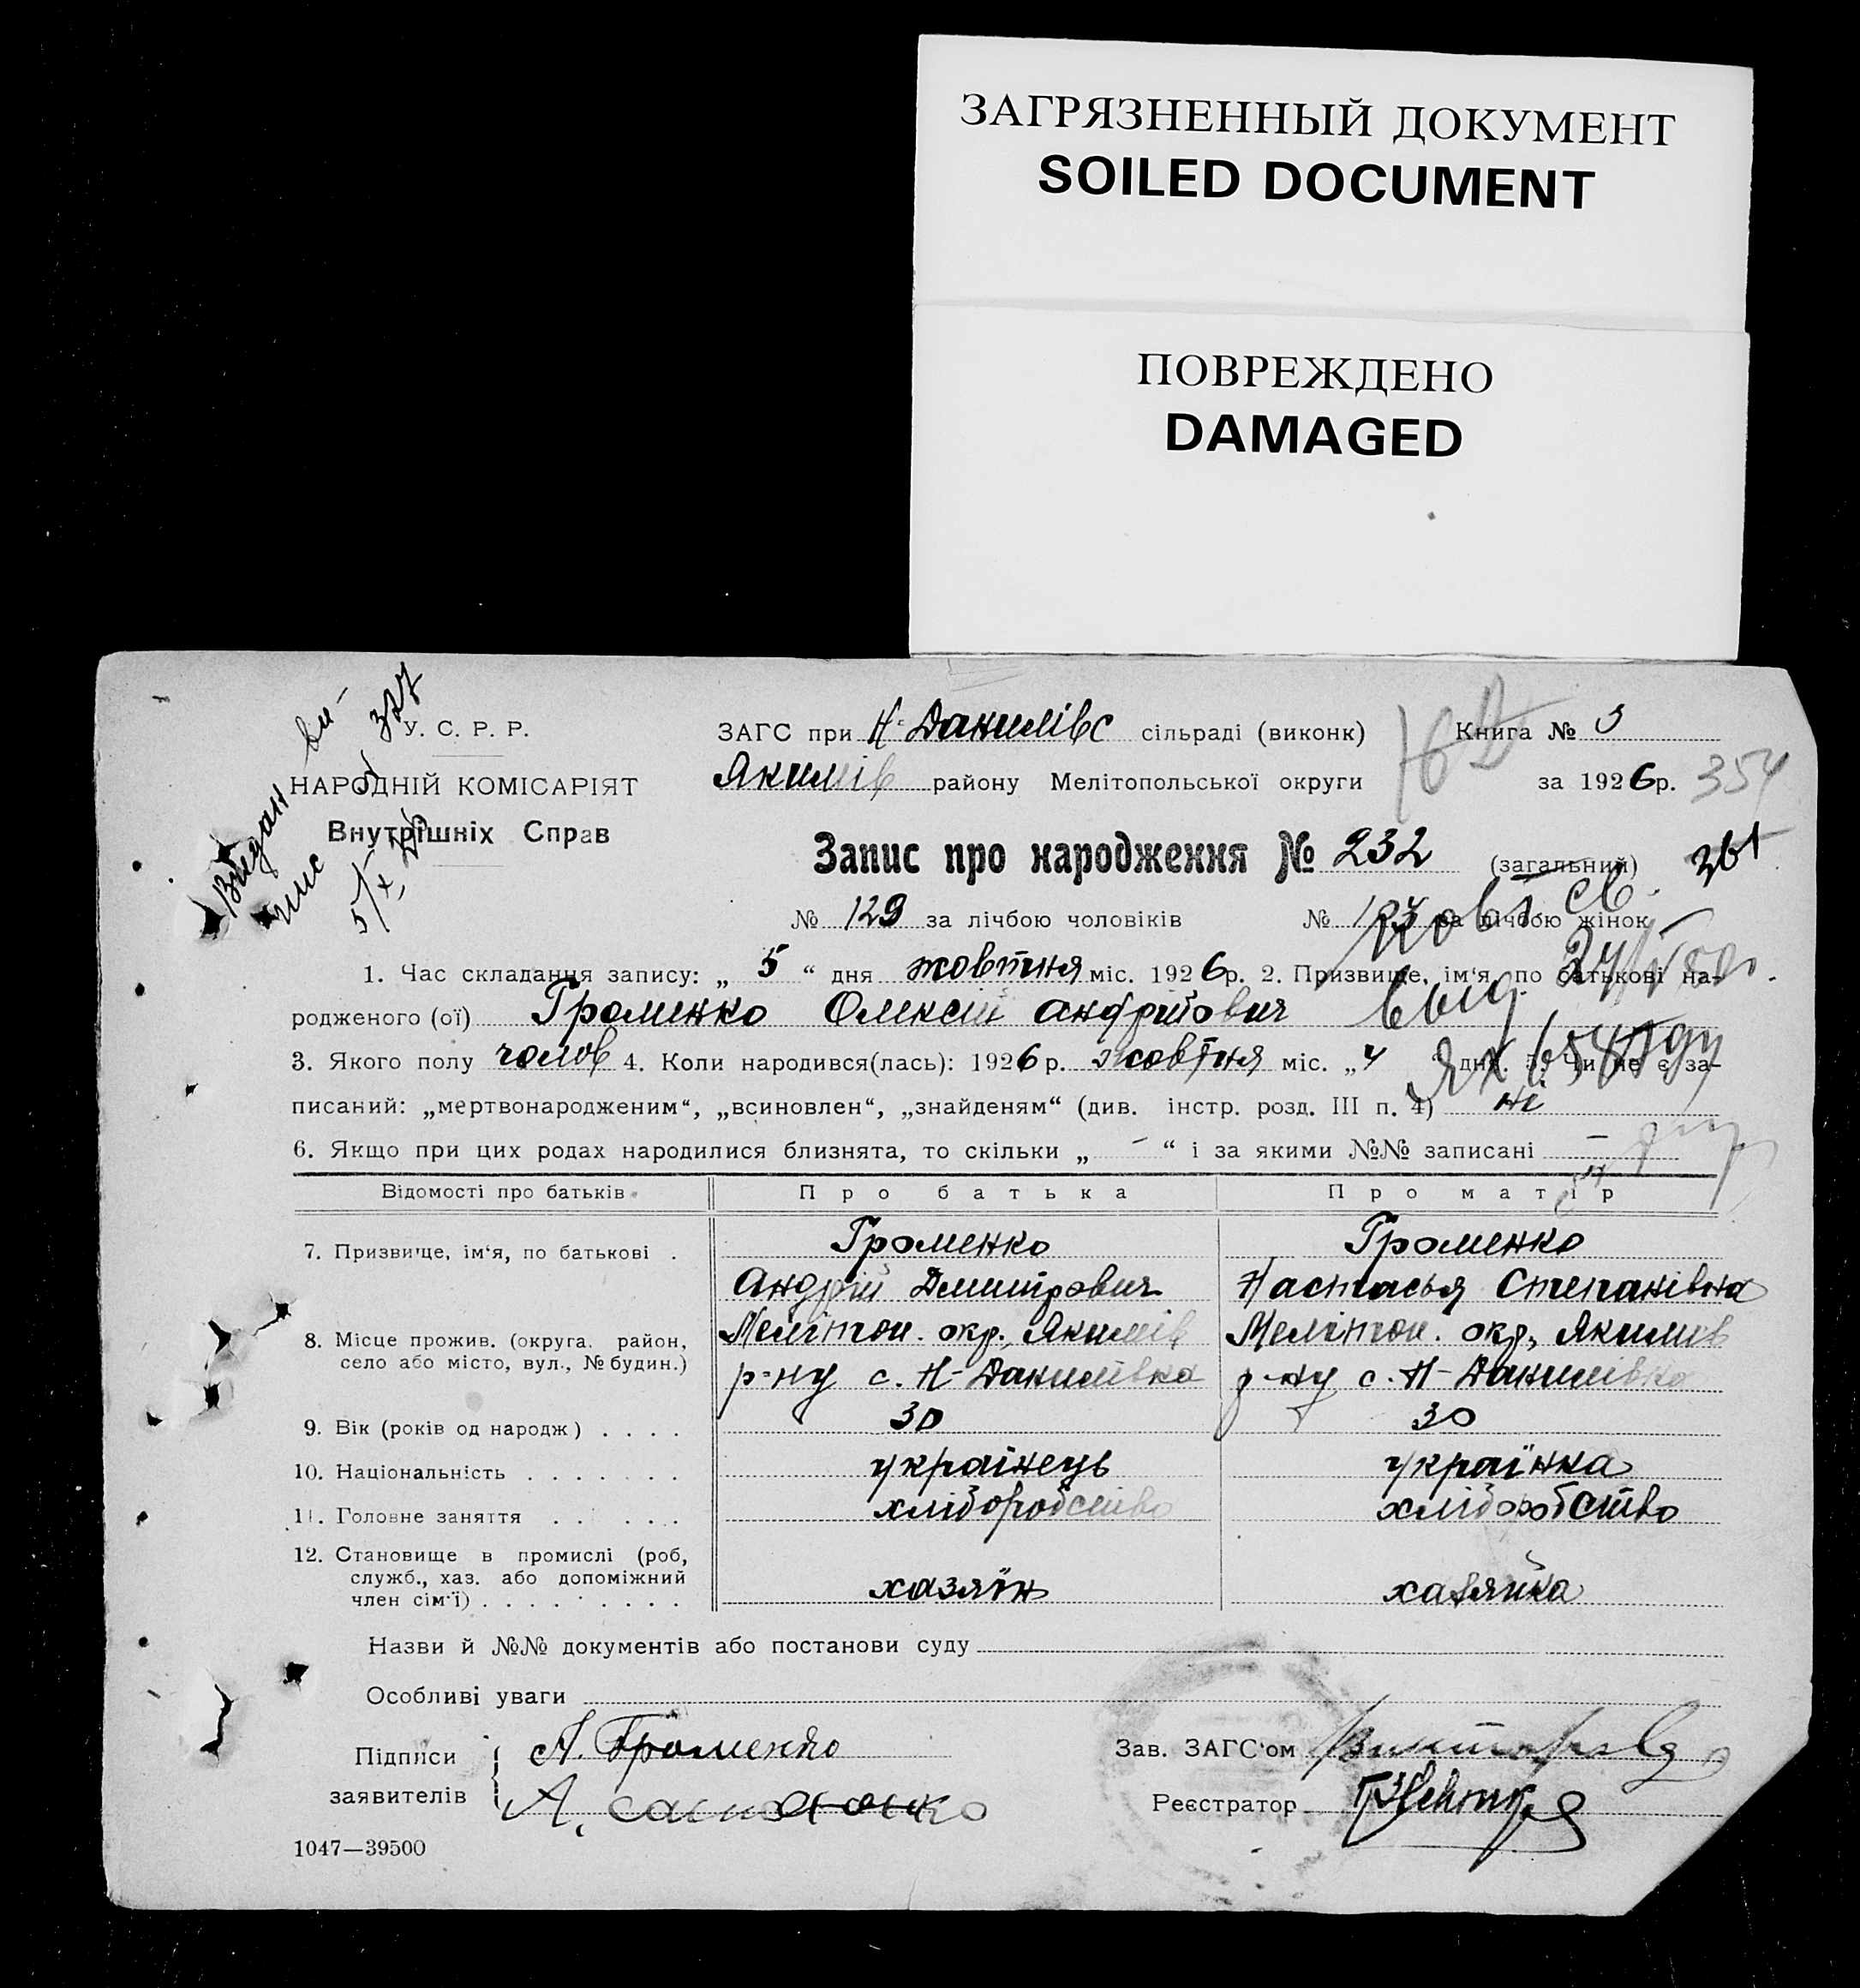 ЗАГРЯЗНЕННЫЙ ДОКУМЕНТ
SOILED DOCUMENT
ПОВРЕЖДЕНО
DAMAGED
Видан ви-
пис
У. С. Р. Р.
НАРОДНІЙ КОМІСАРІЯТ
Внутрішніх Справ
ЗАГС при Н-Данилівс сільраді (виконк)
Якимів району Мелітопольської округи
Книга № 3
за 1926р. 354
Запис про народження № 232 (загальний) 361
№ 129 за лічбою чоловіків № за лічбою жінок
1. Час складання запису: „ 5 “ дня жовтня міс. 1926р. 2. Призвище, ім'я, по батькові на-
родженого (ої) Громенко Олексій Андрійович
3. Якого полу чолов 4. Коли народився(лась): 1926р. жовтня міс. „4 “ дня. 5. Чи не є за-
писаний: „мертвонародженим“, „всиновлен“, „знайденям“ (див. інстр. розд. III п. 4) ні
6. Якщо при цих родах народилися близнята, то скільки „ – “ і за якими №№ записані –
Відомості про батьків Про батька Про матір
7. Призвище, ім'я, по батькові . Громенко Громенко
Андрій Дмитрович Настасья Степанівна
8. Місце прожив. (округа, район, Мелітоп. окр., Якимів Мелітоп. окр., Якимів
село або місто, вул., № будин.) р-ну с. Н-Данилівка р-ну с. Н-Данилівка
9. Вік (років од народж) . . . . 30 30
10. Національність . . . . . . . українець українка
11. Головне заняття . . . . . . хліборобство хліборобство
12. Становище в промислі (роб,
служб., хаз. або допоміжний хазяїн хазяйка
член сім'ї) . . . . . . . . .
Назви й №№ документів або постанови суду
Особливі уваги
Підписи
заявителів
А. Громенко
А.
Зав. ЗАГС'ом
Реєстратор
1047—39500